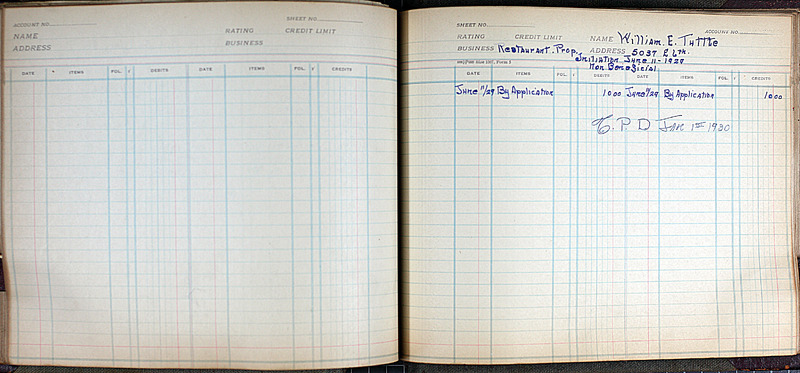 SHEET NO.
ACCOUNT NO.
NAME RATING CREDIT LIMIT
ADDRESS BUSINESS
DATE ITEMS FOL. √ DEBITS DATE ITEMS FOL. √ CREDITS
SHEET NO.
ACCOUNT NO.
RATING CREDIT LIMIT NAME William E. Tuttle
BUSINESS Restaurant. Prop. ADDRESS 5037 E 6th.
Initiation June 11-1929
Non Beneficial
DATE ITEMS FOL. √ DEBITS DATE ITEMS FOL. √ CREDITS
June 11/29 By Application 10 00 June 11/29 By Application 10 00
P. D Jan 1st 1930